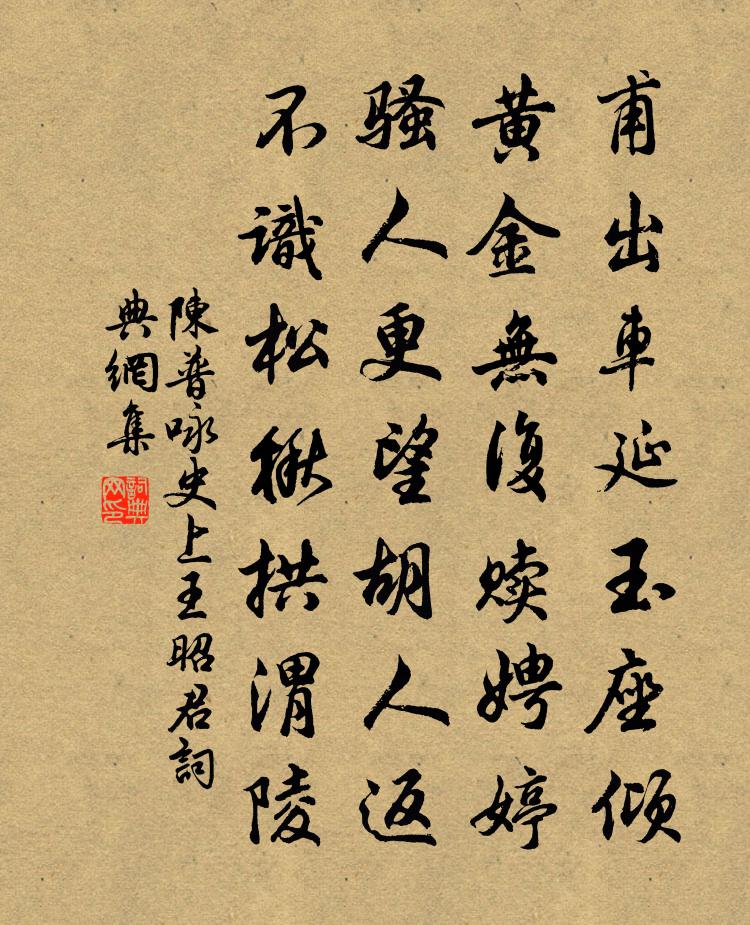 甫出車延玉座傾
黃金無復贖娉婷
騷人更望胡人返
不識松楸拱渭陵
陳普咏史上王昭君詞
典網集
詞典
网印